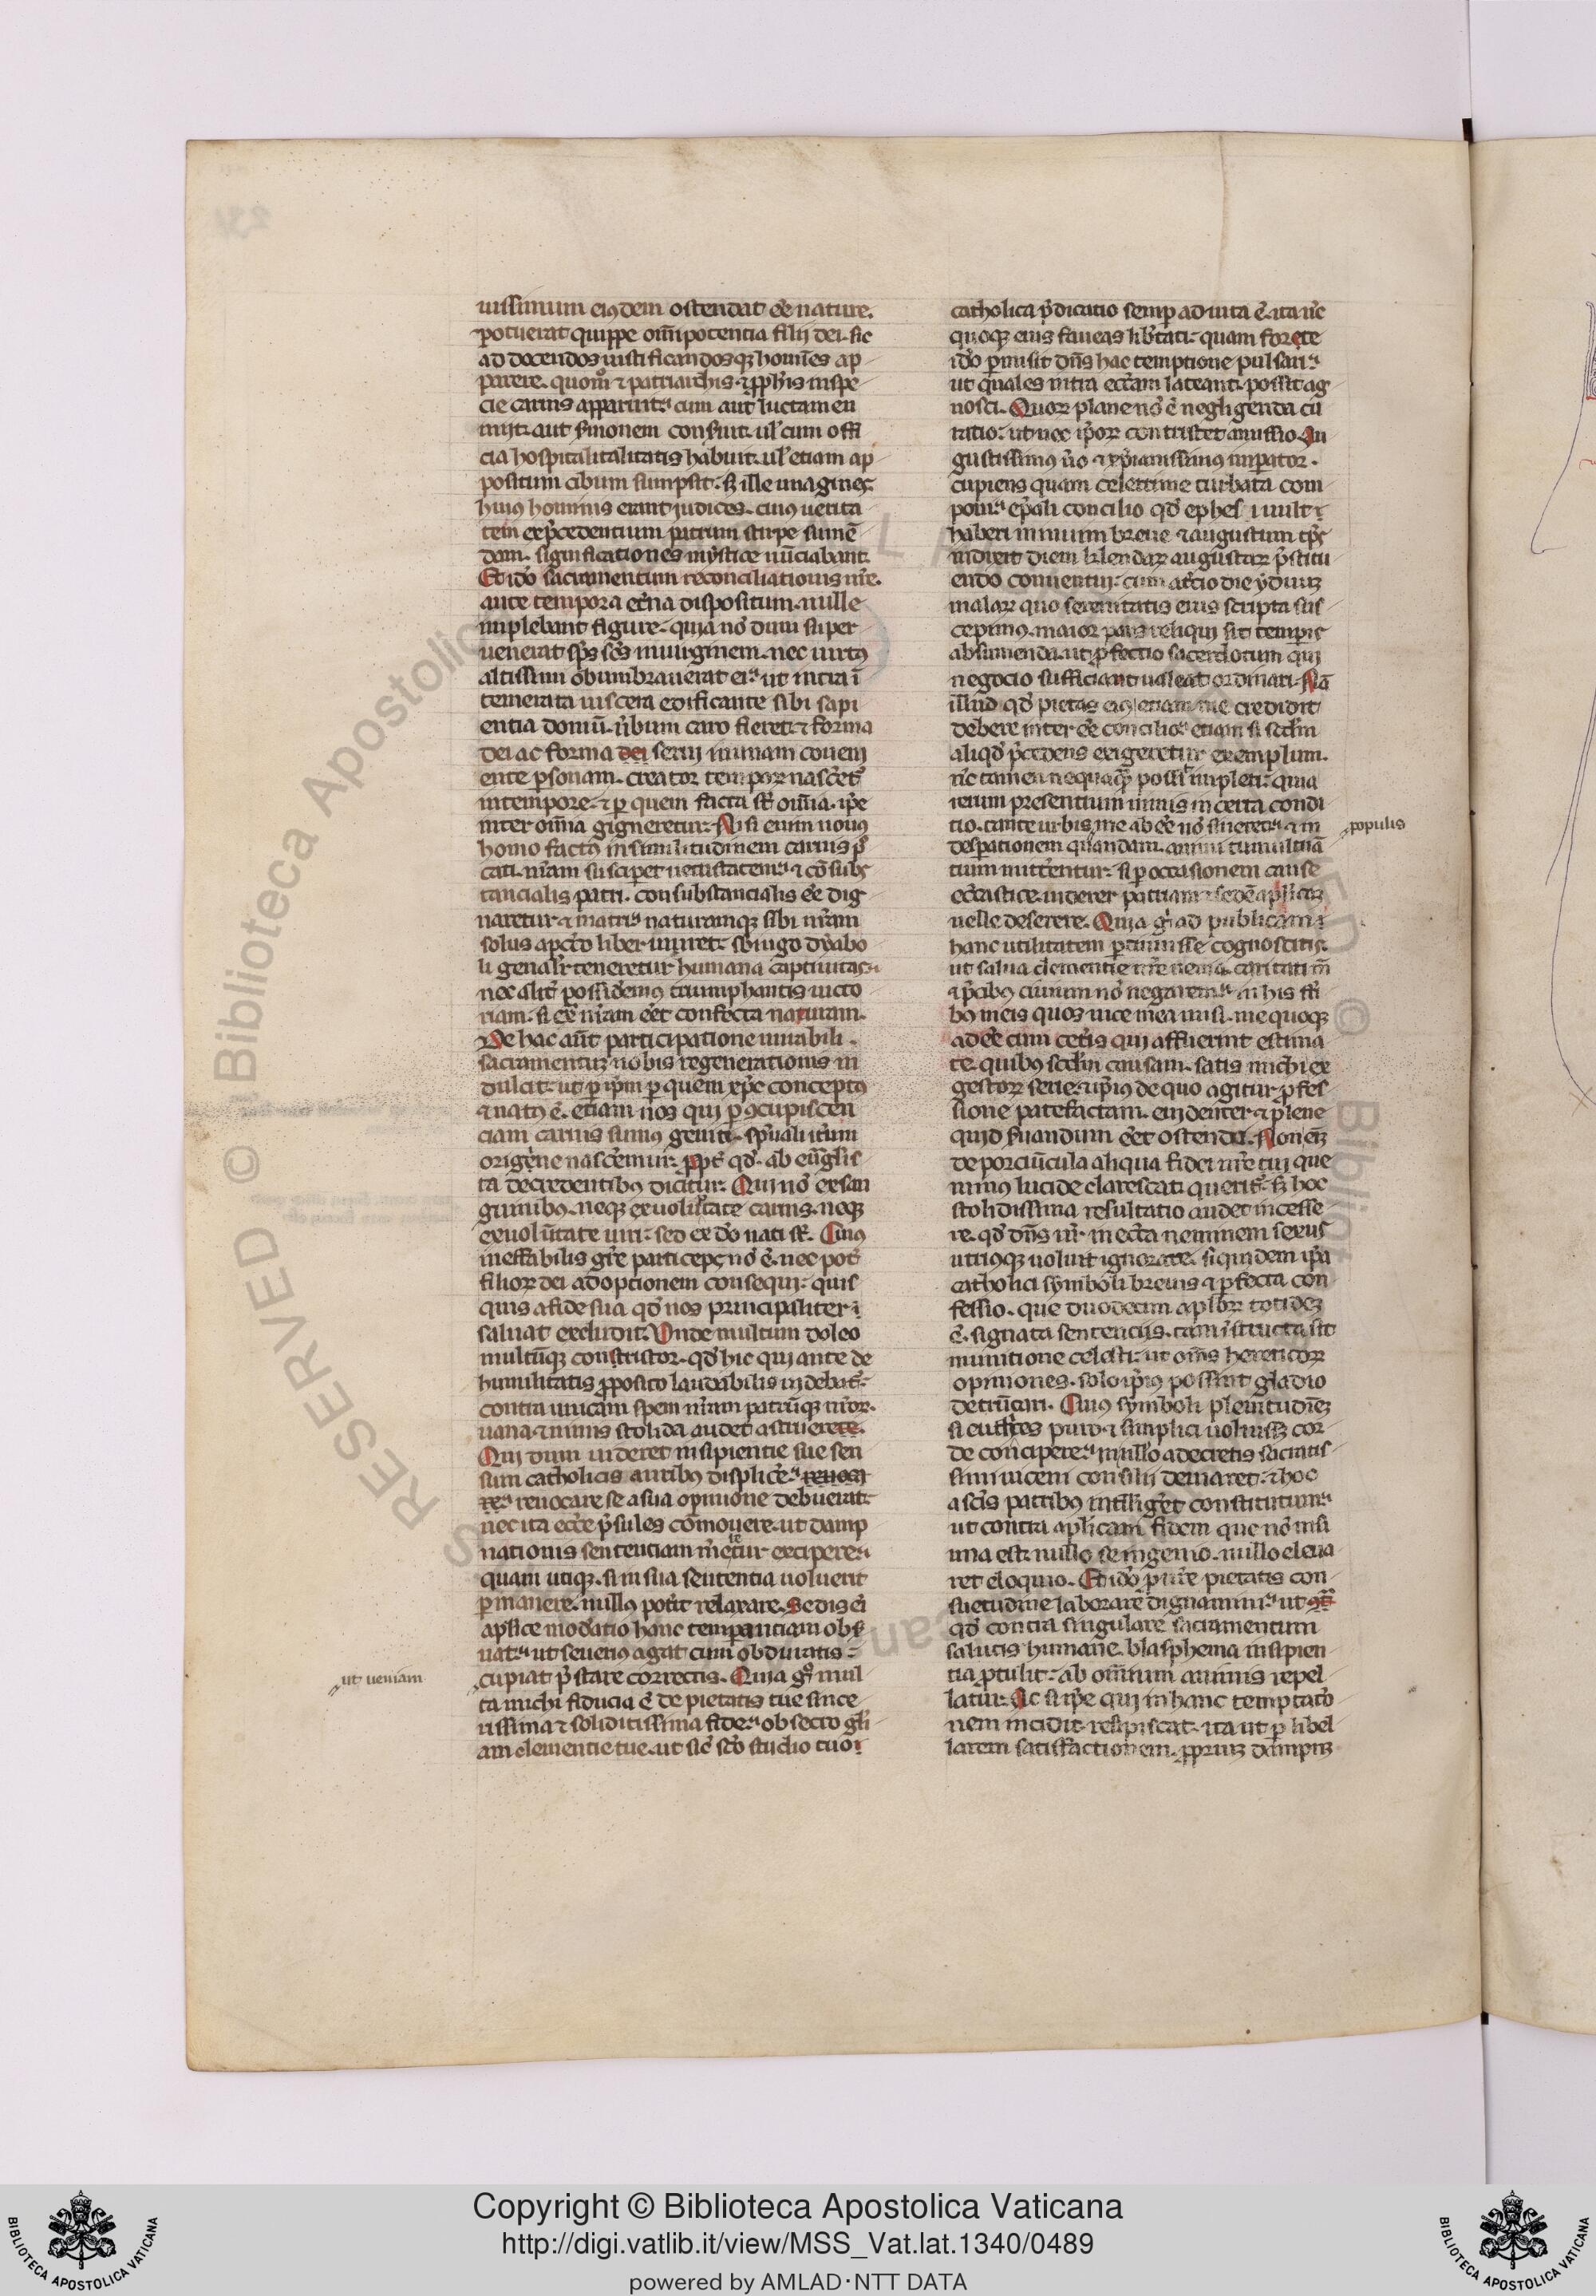 uissimum eiꝰdem ostendat ēē nature.
potuerat quippe om̄ipotentia filij dei. sic
ad docendos iustificandosqꝫ homīes ap
parere. quom̊ ⁊ patriarchis. ⁊ ꝓph̄is inspe
cie carnis apparuit. cum aut luctam en
nijt. aut s̄monem conseruit. ul' cum offi
cia hospitalitalitatis habuit. ul' etiam ap
positum cibum sumpsit. sꝫ ille imagines
huiꝰ hominis erant judices. cuiꝰ uerita
tem ex p̄cedentium patrum stirpe sumē
dam. significationes mystice nūciabant.
Et iđo sacramentum reconciliationis nr̄e.
ante tempora et̄na dispositum. nulle
implebant figure. quia nō dum super
uenerat sp̄s sc̄s in uirginem. nec uirtꝰ
altissimi obumbrauerat ei. ut intra ī
temerata uiscera edificante sibi sapi
entia domū. u̓bum caro fieret. ⁊ forma
dei ac forma dei serui in unam coueni
ente ꝑsonam. creator temporꝝ nascet̄
in tempore. ⁊ ꝑ quem facta st̄ om̄ia. ip̄e
inter om̄ia gigneretur. Nisi enim nouus
homo factꝰ in similitudinem carnis p̄c
cati. nr̄am susciperet uetustatem. ⁊ cōsubs
tancialis patri. consubstancialis ēē dig
naretur ⁊ matri. naturamqꝫ sibi nr̄am
solus a pctō liber uniret. sb̄ iugo dyabo
li gen̄alr̄ teneretur humana captiuitas.
nec alit̄ possidemꝰ triumphantis uicto
riam. si ex̄ nr̄am eēt confecta naturam.
De hac aūt participatione mirabili.
sacramentuꝫ nobis regenerationis in
dulcit. ut ꝑ ip̄m ꝑ quem xp̄c conceptꝰ
⁊ natꝰ ē. etiam nos qui ꝑ ꝯcupiscen
ciam carnis sumꝰ geniti. sp̄uali it̄um
origene nascemur. ꝓpt̄ qđ. ab euāglis
ta de credentibus dicitur. Qui nō ex san
guinibus. neqꝫ ex uolūtate carnis. neqꝫ
ex uolūtate uiri. sed ex dō nati st̄. Cuiꝰ
ineffabilis gr̄e particeps nō ē. nec pot̄
filiorꝝ dei adoptionem consequi. quis
quis a fide sua qđ nos principaliter
saluat excludit. Unde multum doleo
multūqꝫ constristor. qđ hic qui ante de
humilitatis ꝓposito laudabilis uidebat̄.
contra unicam spem nr̄am patrūqꝫ nr̄or.
uana. ⁊ nimis stolida audet astruerere.
Qui dum uideret insipientie sue sen
sum catholicis auribus displicere. reuoca
re. reuocare se a sua opinione debuerat.
nec ita ecc̄e p̄sules cōmouere. ut damp
nationis sententiam meretur excipere.
quam utiqꝫ. si in sua sententia uoluerit
ꝑmanere. nullus poterit relaxare. Sedis ei
aplice moderatio hanc temperantiam obs̄
uat. ut seuerius agat cum obduratis.
ut ueniam
cupiat p̄stare correctis. Quia g° mul
ta michi fiducia ē de pietatis tue since
rissima ⁊ soliditissima fide. obsecro gl'i
am clementie tue. ut sic̄ sc̄o studio tuo
catholica p̄dicatio semꝑ adiuta ē. ita nc̄
quoqꝫ eius faueas libertati. quam forete
iđo ꝑmisit dn̄s hac temptione pulsari.
ut quales intra ecc̄am lateant. possit ag
nosci. Quorꝝ plane nō ē negligenda cu
ratio. ut nec ip̄orꝝ contristet amissio. Au
gustissimꝰ u̓o ⁊ xp̄ianissimus imꝑator.
cupiens quam celerrime turbata com
poni. ep̄ali concilio qđ ephesi uult
haberi nimium breue ⁊ augustum tp̄s
indixit diem kalendarꝝ augustarꝝ p̄stitu
endo conuentui. cum a tercio die yduuꝫ
maiarꝝ quo serenitatis eius scripta sus
cepimus. maior pars reliqui sit tempis
absumenda. ut ꝓfectio sacerdotum qui
negocio sufficiant ualeat ordinari. Nā
illud qđ pietas eiꝰ etiam me credidit
debere inter ēē concilio. etiam si scd̄m
aliqđ p̄cedens exigeretur exemplum.
nc̄ tamen nequaꝗ̄ possit impleri. quia
rerum presentium nimis incerta condi
tio. tante urbis me abēē nō sineret. ⁊ in
populis
desperationem quandam. animi tumultuā
tium mitterentur. si ꝑ occasionem cause
ecc̄astice. uiderer patriam ⁊ sedē aplicaꝫ
uelle deserere. Quia g° ad publicam
hanc utilitatem ꝑtinuisse cognoscitis.
ut salua clementie ur̄e uenia. caritati m̄
⁊ p̄cibus ciuium nō negarem. in his fr̄i
bꝰ meis quos uice mea misi. me quoqꝫ
adēē cum cet̄is qui affuerint estima
te. quibus scd̄m causam. satis michi ex
gestorꝝ serie. ⁊ ip̄ius de quo agitur ꝓfes
sione patefactam. euidenter ⁊ plene
quid s̄uandum eēt ostendi. Non eīꝫ
de porciūcula aliqua fidei nr̄e tui que
minus lucide clarescat querit̄. sꝫ hoc
stolidissima resultatio audet incesse
re. qđ dn̄s nr̄ in ecc̄a neminem sexus
utriusqꝫ uoluit ignorare. siquidem ip̄a
catholici symboli breuis ⁊ ꝑfecta con
fessio. que duodecim aplorꝝ totideꝫ
ē. signata sentencijs. tam īstructa sit
munitione celesti. ut om̄s hereticorꝝ
opiniones. solo ip̄ius possint gladio
detrūcari. Cuius symboli plenitudīeꝫ
si eutiches puro ⁊ simplici uoluisꝫ cor
de concipere. in nullo a decretis sacratis
simi niceni consilij deuiaret. ⁊ hoc
a sc̄is patribus intelliget constitutum.
ut contra aplicam fidem que nō nisi
una est. nullo se ingenio. nullo eleua
ret eloquio. Et iđo ꝑ ur̄e pietatis con
suetudine laborare dignamini. ut ꝯt̄
qđ contra singulare sacramentum
salutis humane. blasphema insipien
tia ꝓtulit. ab om̄ium animis repel
latur. Ac si ip̄e qui in hanc temptaciō
nem incidit. resipiscat. ita ut ꝑ libel
larem satisfactionem. ꝓpriuꝫ dampnꝫ
Copyright © Biblioteca Apostolica Vaticana
http://digi.vatlib.it/view/MSS_Vat.lat.1340/0489
powered by AMLAD·NTT DATA